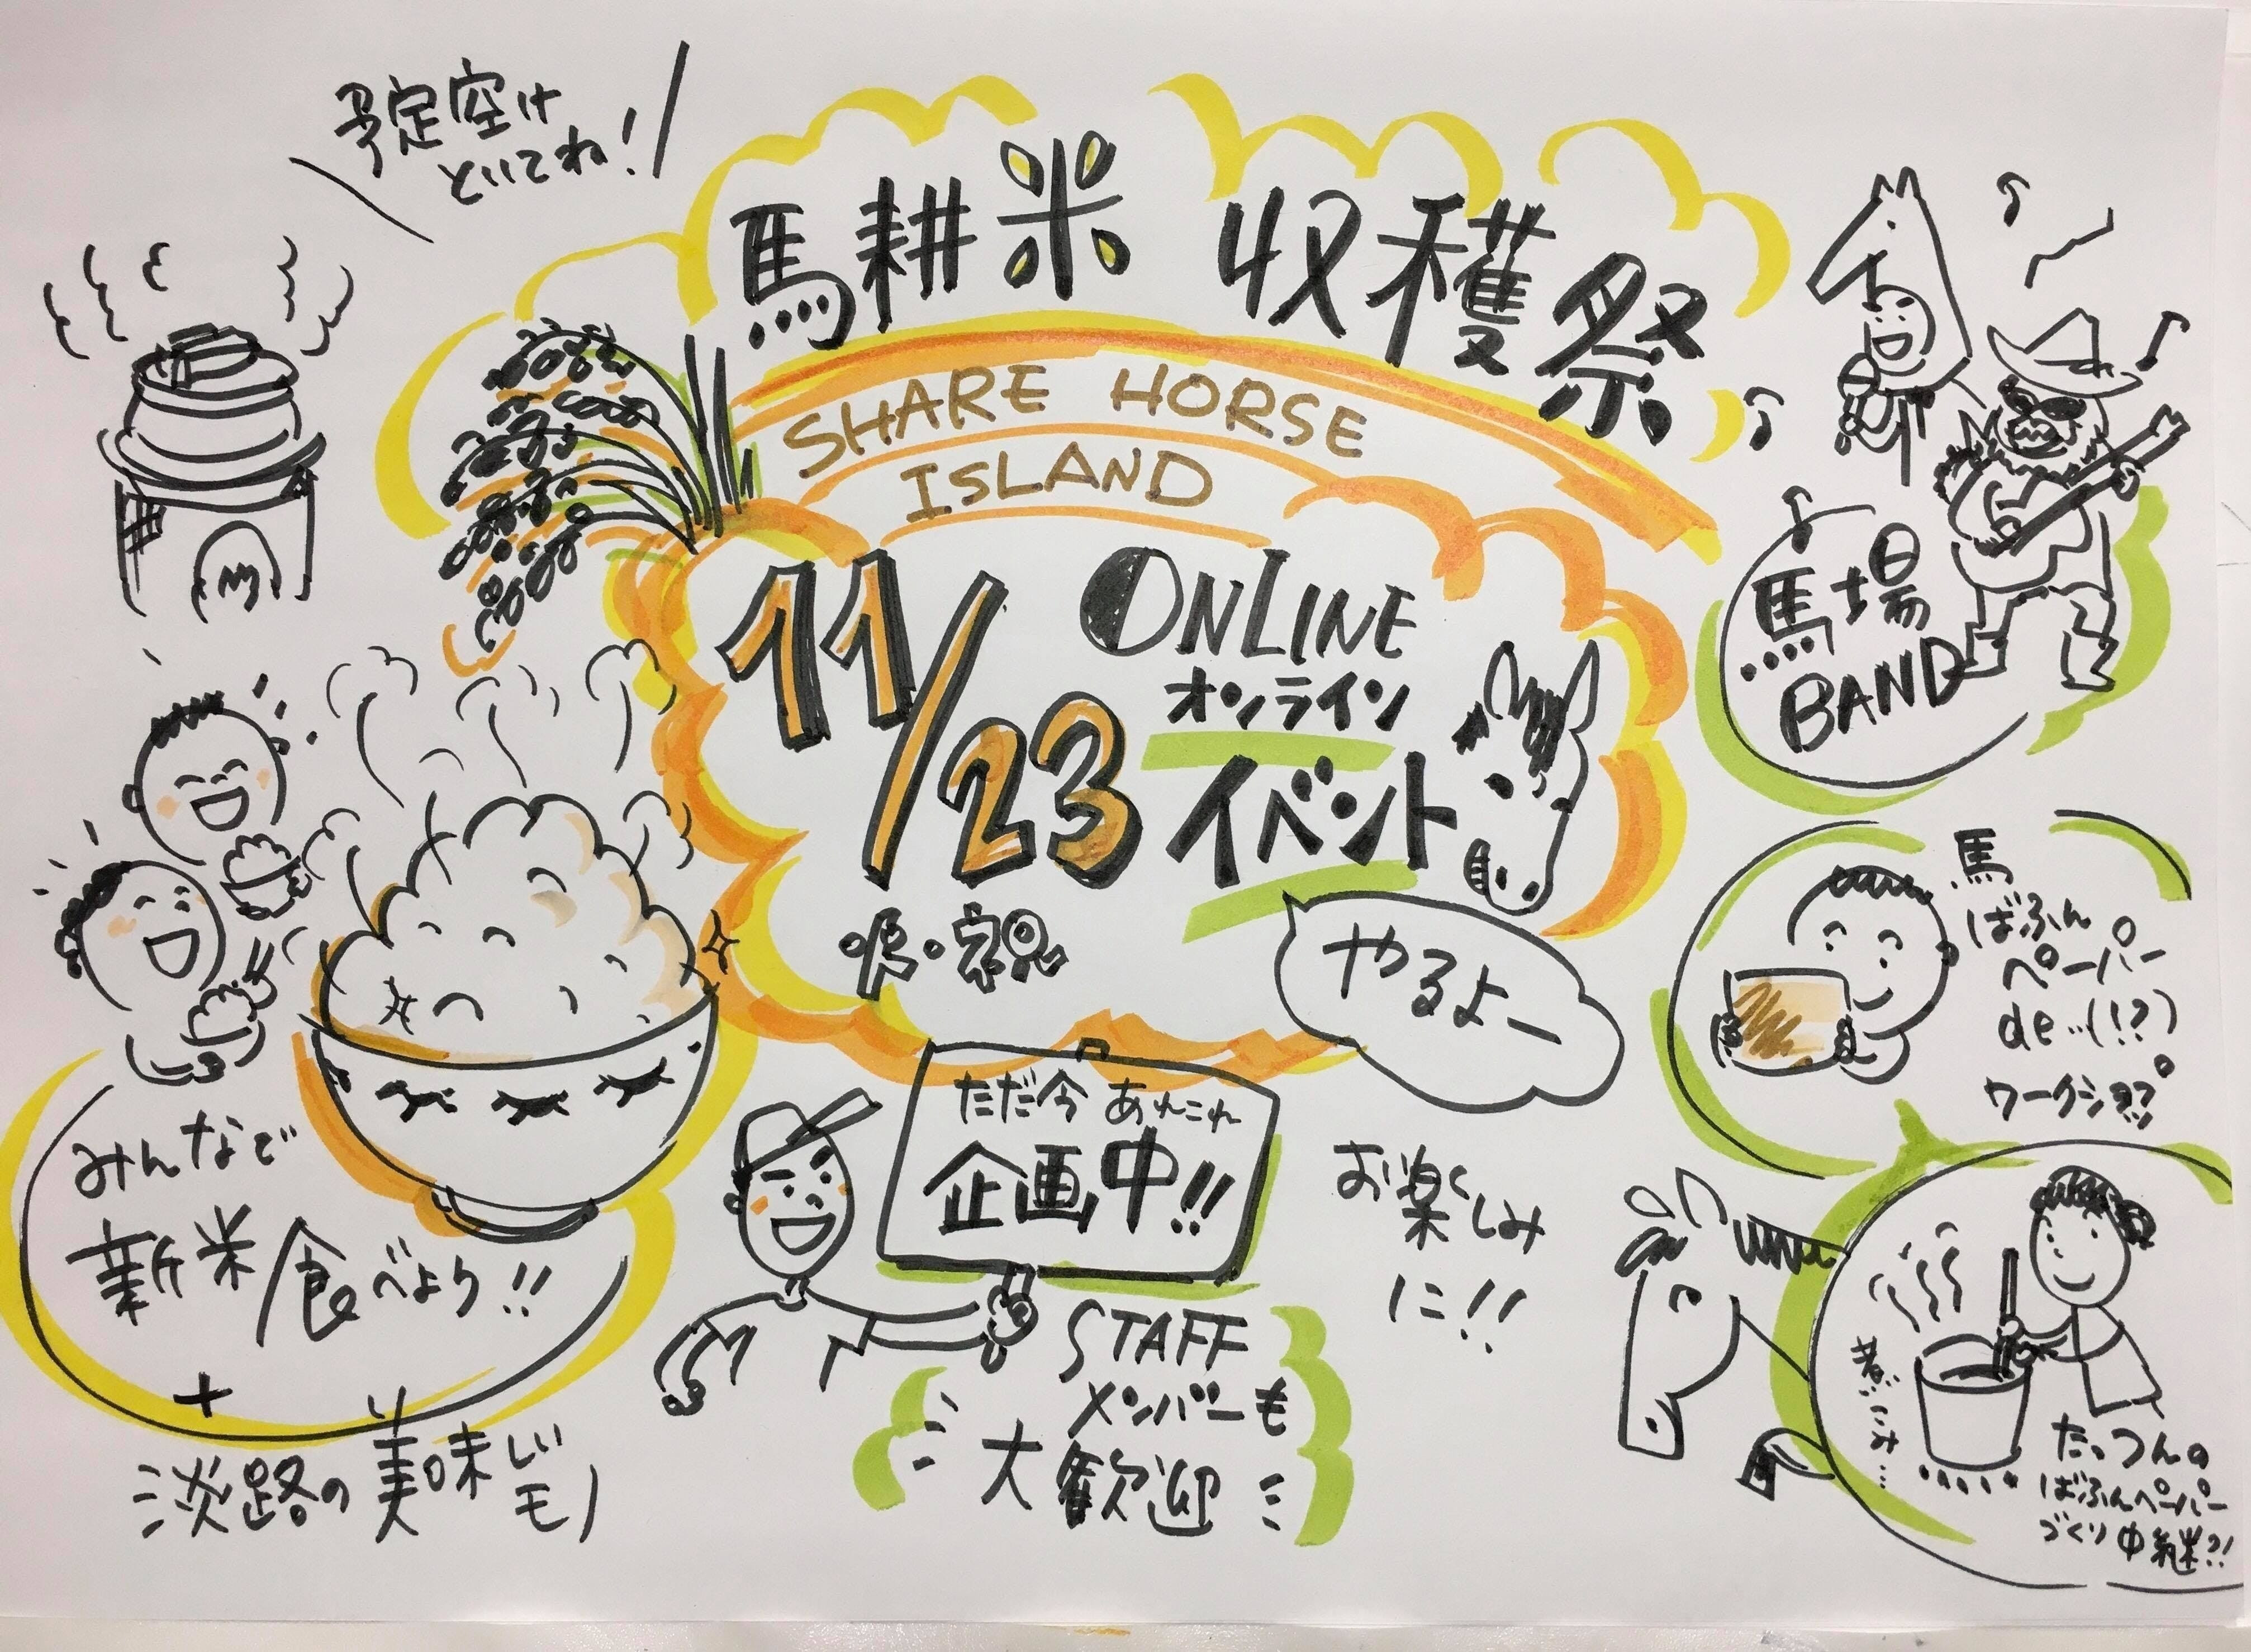 予定空け
といてね!
馬耕米 収穫祭
SHARE HORSE
ISLAND
11/23
ONLINE
オンライン
イベント
やるよー
馬場
BAND
馬
ばふん
ペーパー
de…(!?)
ワークショップ
みんなで
新米食べよう!!
+
淡路の美味しい
モノ
ただ今 あれこれ
企画中!!
お楽しみ
に!!
STAFF
メンバーも
大歓迎
煮こみ…
たっつんの
ばふんペーパー
づくり中継?!